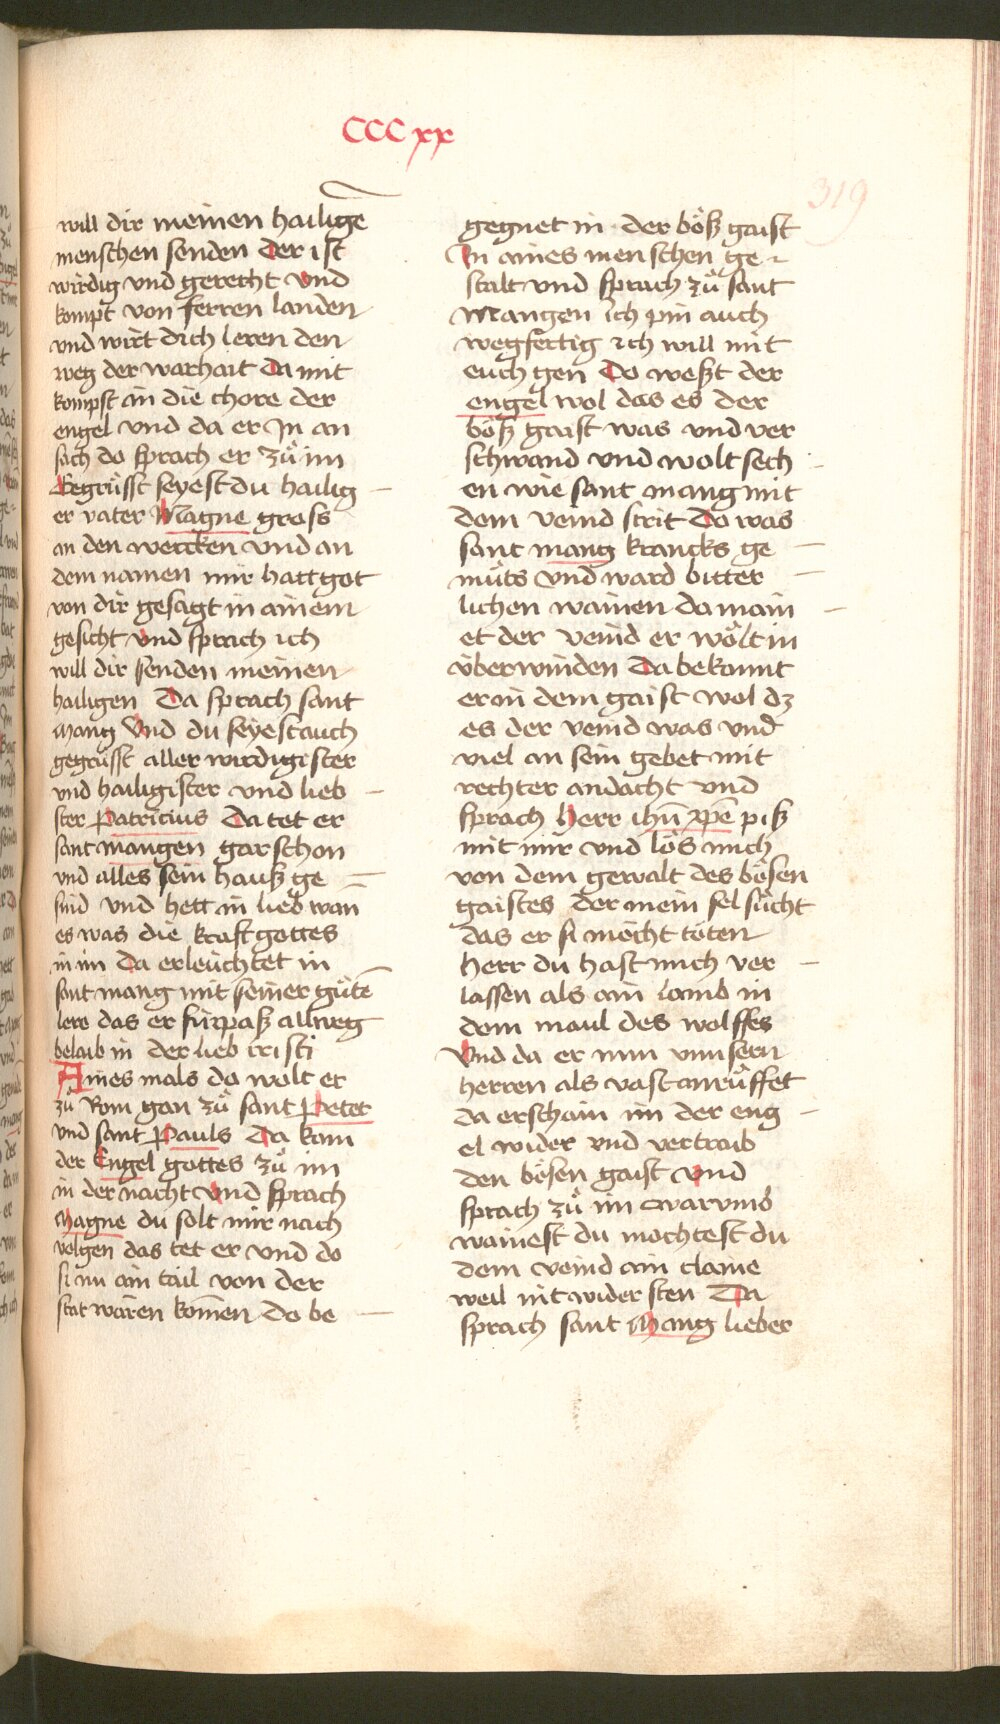 CCCxx
319
will dir meinen hailigē
menschen senden Der ist
wirdig vnd gerecht Vnd
kompt von ferren landen
vnd wirt dich leren den
weg der warhait Da mit
kompst in die chore der
engel vnd da er Jn an
sach do sprach er zů im
Begrüsst seyest du hailig
er vater Magne gross
an den wercken vnd an
dem namen mir hatt got
von dir gesagt in ainem
gesicht Vnd sprach ich
will dir senden meinen
hailigen Da sprach sant
Mang Vnd du seyest auch
gegrüsst aller wirdigister
vnd hailigister vnd lieb
ster Patricius Da tet er
sant mangen gar schon
vnd alles sein hauß ge
sind vnd hett in lieb wan
es was die kraft gottes
in im Da erleuchtet in
sant mang mit seiner gůtē
lere das er fürpaß allweg
belaib in der lieb cristi
Aines mals do wolt er
zů Rom gan zů sant Peter
vnd sant Pauls Da kam
der Engel gottes zů im
in der nacht Vnd sprach
Magne du solt mir nach
volgen das tet er vnd do
si nu ain tail von der
stat waren komen do be
gegnet in der böß gaist
Jn aines menschen ge
stalt vnd sprach zů sant
Mangen ich pin auch
wegfertig ich will mit
euch gen Do weßt der
engel wol das es der
böß gaist was vnd ver
schwand vnd wolt sech
en wie sant mang mit
dem veind strit Do was
sant mang krancks ge
müts vnd ward bitter
lichen wainen da main
et der veind er wölt in
überwinden Da bekannt
er in dem gaist wol dz
es der veind was vnd
viel an sein gebet mit
rechter andacht vnd
sprach Herr ihū xpē piß
mit mir vnd lös mich
von dem gewalt des bösen
gaistes der mein sel sůcht
das er si möcht töten
Herr du hast mich ver
lassen als ain lamb in
dem maul des wolffes
Vnd da er nun vnnsern
herren als vast anrůffet
da erschain im der eng
el wider vnd vertraib
den bösen gaist Vnd
sprach zů im warvmb
wainest du mochtest du
dem veind ain claine
weil nit wider sten Da
sprach sant Mang lieber